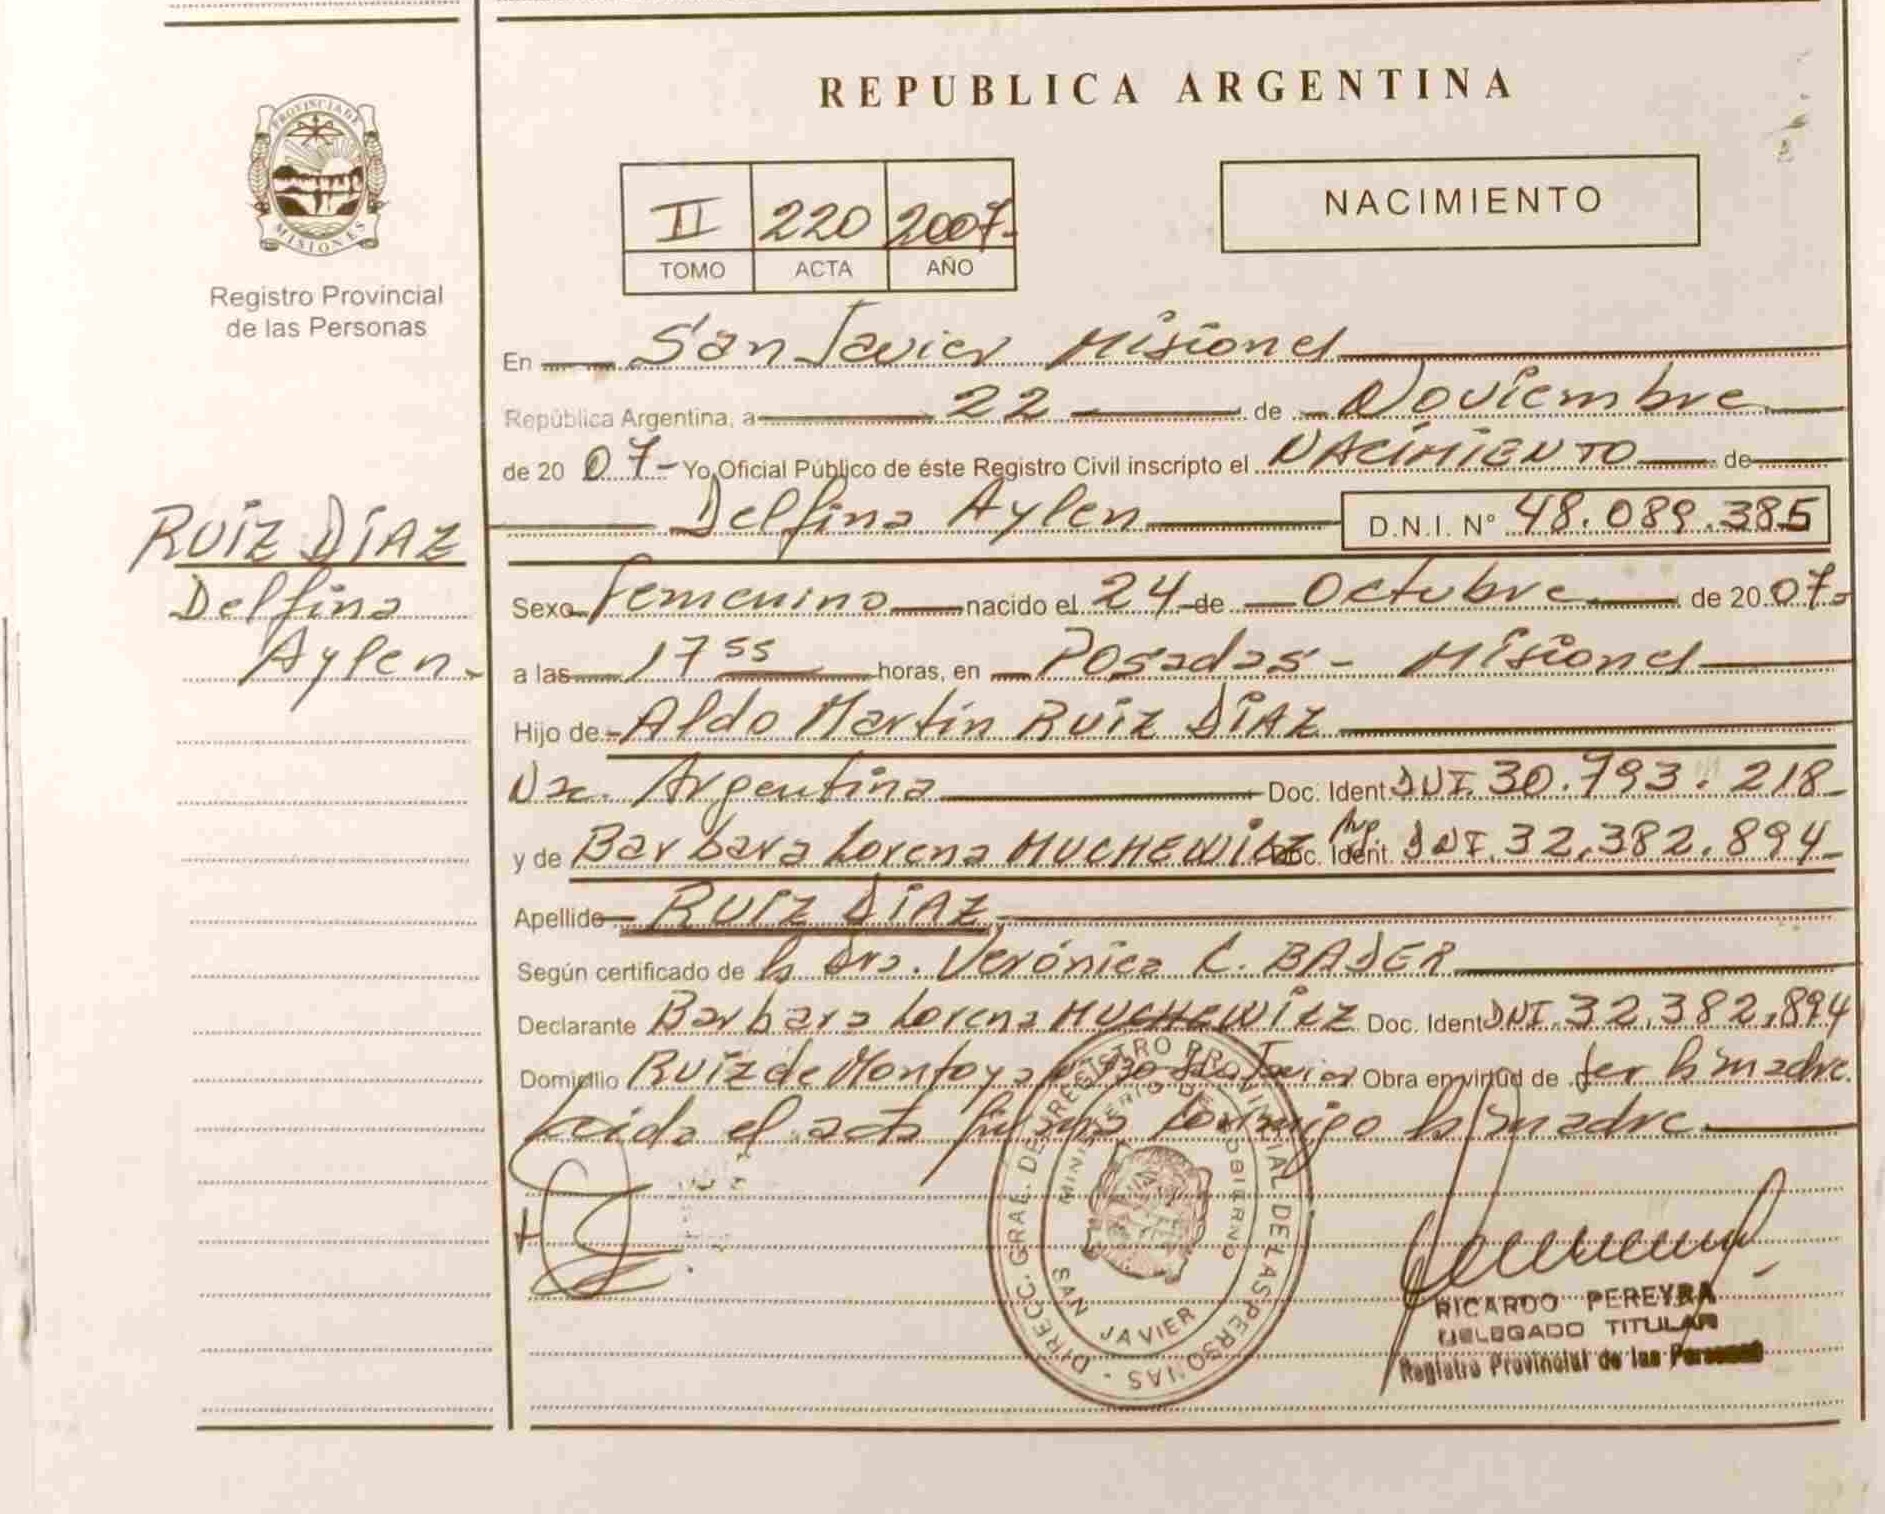 PROVINCIA DE
MISIONES
Registro Provincial
de las Personas
REPUBLICA ARGENTINA
II 220 2007-
TOMO ACTA AÑO
NACIMIENTO
En San Javier Misiones
República Argentina, a 22 de Noviembre
de 20 07- Yo, Oficial Público de éste Registro Civil inscripto el NACIMIENTO de
RUIZ DÍAZ
Delfina
Aylen-
Delfina Aylen D.N.I. Nº 48.089.385
Sexo femenino nacido el 24 de Octubre de 20 07-
a las 17 55 horas, en Posadas - Misiones
Hijo de Aldo Martín RUIZ DÍAZ
Nac. Argentina Doc. Ident DNI. 30.793.218-
y de Barbara Lorena MUCHEWICZ Arg. Doc. Ident. DNI. 32.382.894-
Apellido RUIZ DÍAZ
Según certificado de la Dra. Verónica C. BADER
Declarante Barbara Lorena MUCHEWICZ Doc. Ident DNI. 32.382.894
Domicilio Ruíz de Montoya Javier Obra en virtud de ser la madre.
Leída el acta firma conmigo la madre.
DIRECC. GRAL. DE REGISTRO PROVINCIAL DE LAS PERSONAS
MINISTERIO DE GOBIERNO
SAN JAVIER
RICARDO PEREYRA
DELEGADO TITULAR
Registro Provincial de las Personas